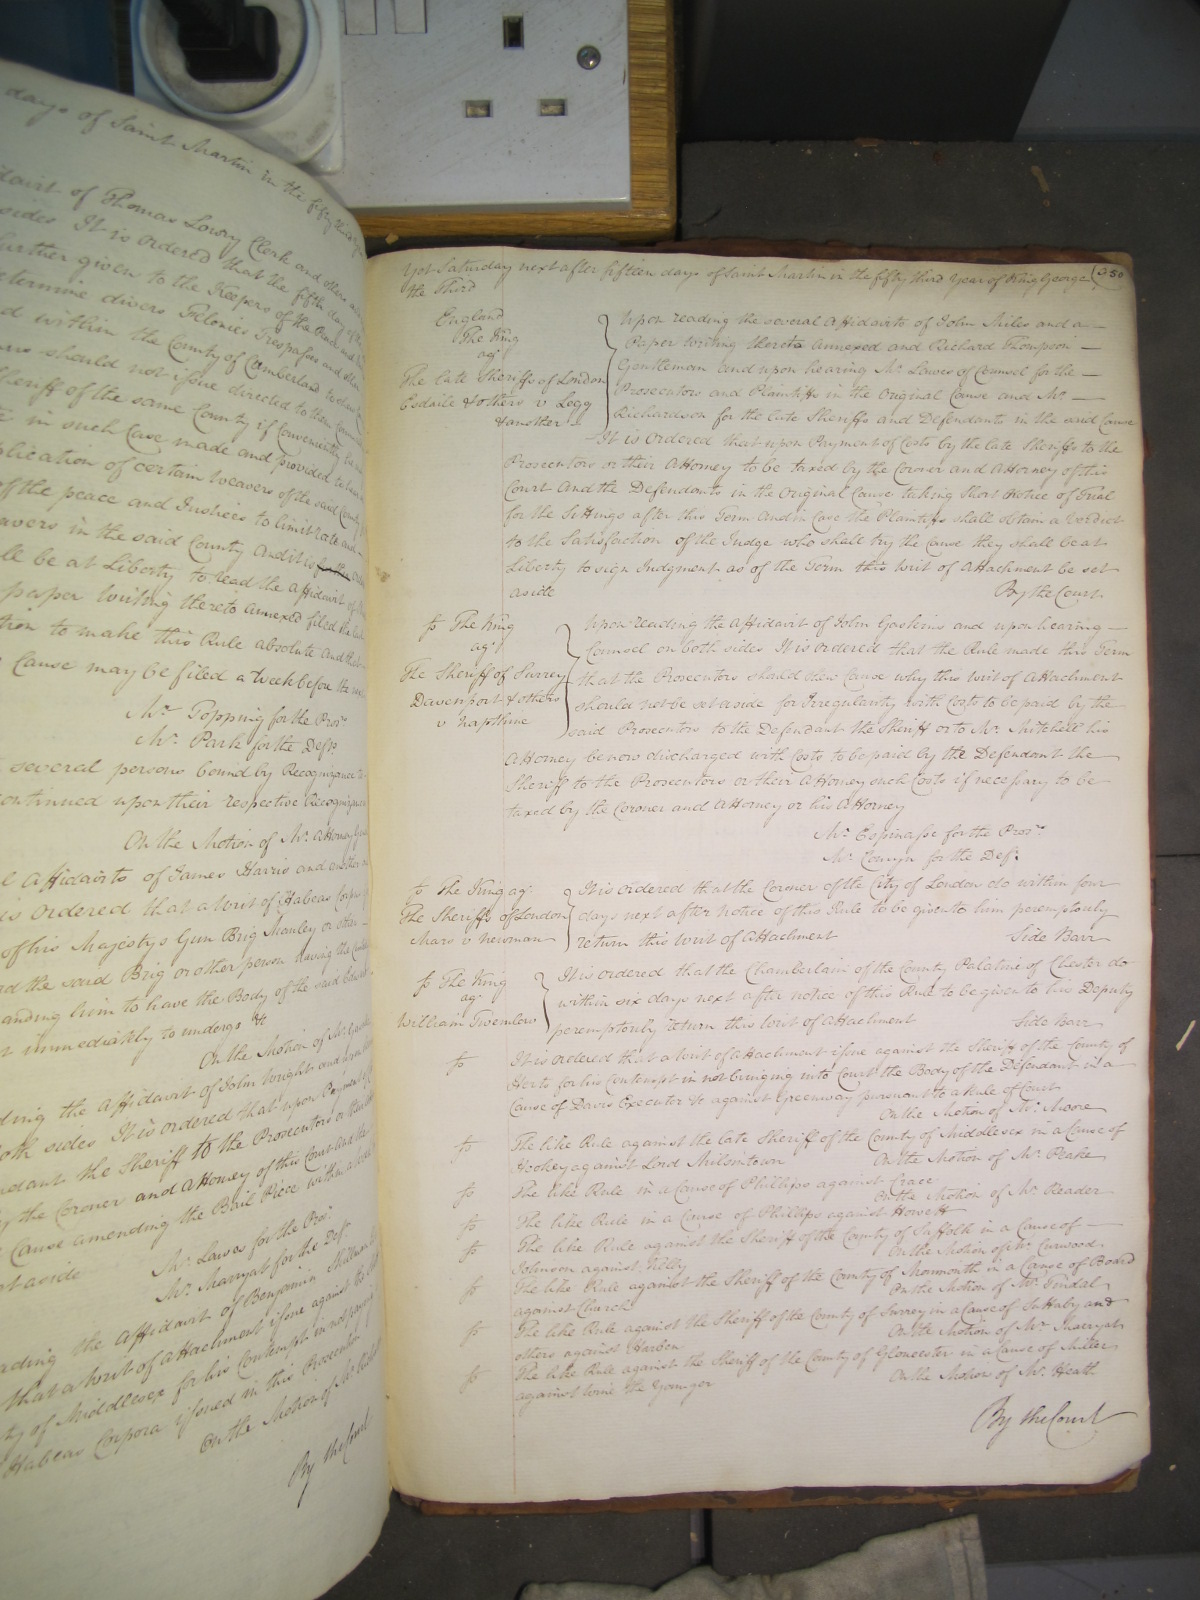 days of Saint Martin in the fifty third
davit of Thomas Lowry Clerk and others
sides It is ordered that the fifth day of
further given to the Keepers of the
etermine divers Felonies Trespasses and
d within the County of Cumberland to
should not issue directed to them
Sheriff of the same County if Conveniently
in such Case made and provided to
plication of certain Weavers of the said County
of the peace and Justices to limit rate and
eavers in the said County And it is further
ll be at Liberty to read the Affidavit of
paper Writing thereto annexed filed
tion to make this Rule absolute and that
Cause may be filed a Week before the
Mr. Topping for the Pros.
Mr. Park for the Deft.
several persons bound by Recognizance
continued upon their respective Recognizances
On the Motion of Mr. Attorney
l Affidavits of James Harris and another
is Ordered that a Writ of Habeas Corpus
of his Majestys Gun Brig Manley or other
ad the said Brig or other person having the
anding him to have the Body of the said
t immediately to undergo &c
On the Motion of Mr.
ding the Affidavit of John Wright and
oth sides It is ordered that upon Payment
ndant the Sheriff to the Prosecutors or
y the Coroner and Attorney of this Court
Cause amending the Bail Piece within
et aside
Mr. Lawes for the Pros.
Mr. Marryat for the Def.
ading the Affidavit of Benjamin
that a Writ of Attachment issue against the
ty of Middlesex for his Contempt in not
Habeas Corpora issued in this Prosecution
On the Motion of
By the Court
Yet Saturday next after fifteen days of Saint Martin in the fifty third Year of King George 350
the Third
England
The King
agt
The late Sheriffs of London
Esdaile & others v Legg
& another
Upon reading the several Affidavits of John Miles and a
Paper Writing thereto Annexed and Richard Thompson
Gentleman And upon hearing Mr. Lawes of Counsel for the
Prosecutors and Plaintiffs in the Original Cause and Mr.
Richardson for the late Sheriffs and Defendants in the said Cause
It is Ordered that upon Payment of Costs by the late Sheriffs to the
Prosecutors or their Attorney to be taxed by the Coroner and Attorney of this
Court And the Defendants in the Original Cause taking Short Notice of Trial
for the Sittings after this Term And in Case the Plaintiffs shall obtain a Verdict
to the Satisfaction of the Judge who shall try the Cause they shall be at
Liberty to sign Judgment as of the Term this Writ of Attachment be set
aside By the Court
fo The King
agt
The Sheriff of Surrey
Davenport & others
v Napthine
Upon reading the Affidavit of John Gaskins and upon hearing
Counsel on both sides It is ordered that the Rule made this Term
that the Prosecutors should shew Cause why this Writ of Attachment
should not be set aside for Irregularity with Costs to be paid by the
said Prosecutors to the Defendant the Sheriff or to Mr. Mitchell his
Attorney be now discharged with Costs to be paid by the Defendant the
Sheriff to the Prosecutors or their Attorney such Costs if necessary to be
taxed by the Coroner and Attorney or his Attorney
Mr. Espinasse for the Pros.
Mr. Comyn for the Def.
fo The King agt
The Sheriffs of London
Mars v Newman
It is ordered that the Coroner of the City of London do within four
days next after notice of this Rule to be given to him peremptorily
return this Writ of Attachment Side Barr
fo The King
agt
William Twemlow
It is ordered that the Chamberlain of the County Palatine of Chester do
within six days next after notice of this Rule to be given to his Deputy
peremptorily return this Writ of Attachment Side Barr
fo It is ordered that a Writ of Attachment issue against the Sheriff of the County of
Herts for his Contempt in not bringing into Court the Body of the Defendant in a
Cause of Davis Executor &c against Greenway pursuant to a Rule of Court
On the Motion of Mr. Moore
fo The like Rule against the late Sheriff of the County of Middlesex in a Cause of
Hookey against Lord Milsintown On the Motion of Mr. Peake
fo The like Rule in a Cause of Phillips against Grace
On the Motion of Mr. Reader
fo The like Rule in a Cause of Phillips against Howett
fo The like Rule against the Sheriff of the County of Suffolk in a Cause of
Johnson against Kilby On the Motion of Mr. Curwood
fo The like Rule against the Sheriff of the County of Monmouth in a Cause of Board
against Church On the Motion of Mr. Tindal
fo The like Rule against the Sheriff of the County of Surrey in a Cause of Suttaby and
others against Harden On the Motion of Mr. Marryat
fo The like Rule against the Sheriff of the County of Gloucester in a Cause of Miller
against the Younger On the Motion of Mr. Heath
By the Court